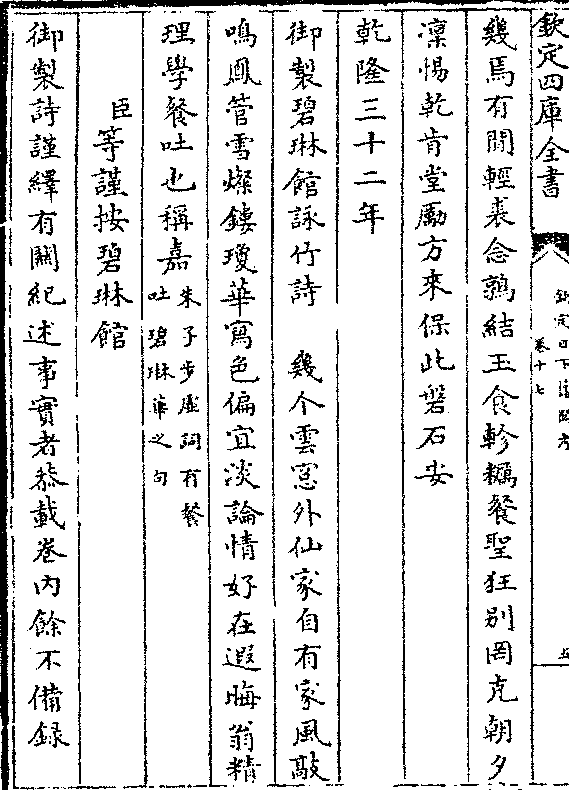 欽定四庫全書
欽定日下舊聞考
卷十七
五
幾焉有閒輕裘念鶉結玉食軫糲餐聖狂别罔克朝夕
凜惕乾肯堂勵方來保此磐石安
乾隆三十二年
御製碧琳館詠竹詩　幾个雲窓外仙家自有家風敲
鳴鳳管雪燦鏤瓊華寫色偏宜淡論情好在遐晦翁精
理學餐吐也稱嘉朱子步虚詞有餐
吐碧琳華之句
臣等謹按碧琳館
御製詩謹繹有關紀述事實者恭載卷内餘不備録